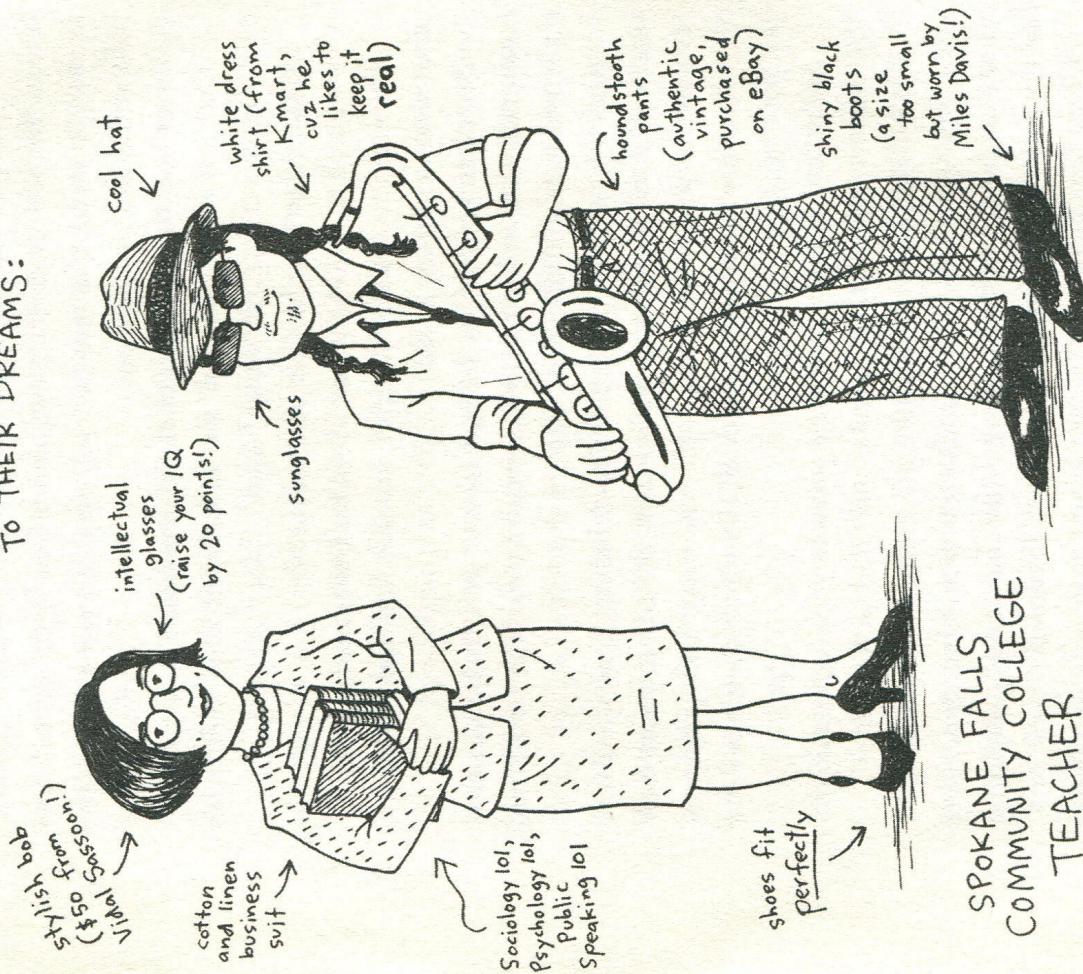 TO THEIR DREAMS:
stylish bob
($50 from
Vidal Sassoon!)
intellectual
glasses
(raise your IQ
by 20 points!)
cotton
and linen
business
suit
Sociology 101,
Psychology 101,
Public
Speaking 101
shoes fit
perfectly
SPOKANE FALLS
COMMUNITY COLLEGE
TEACHER
cool hat
sunglasses
white dress
shirt (from
Kmart,
cuz he
likes to
keep it
real)
houndstooth
pants
(authentic
vintage,
purchased
on eBay)
shiny black
boots
(a size
too small
but worn by
Miles Davis!)